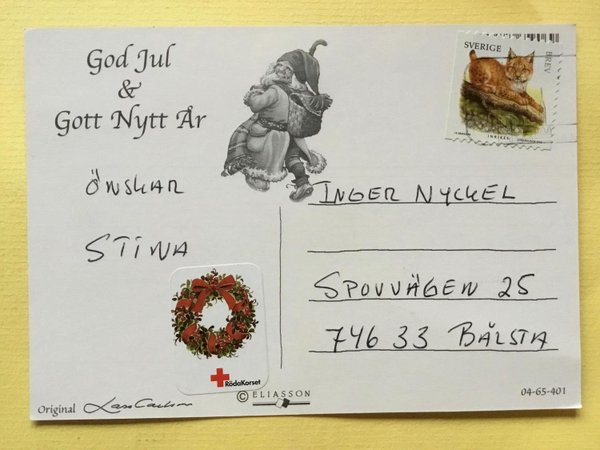 God Jul
&
Gott Nytt År
ÖNSKAR
STINA
SVERIGE
BREV
INRIKES
INGER NYCKEL
SPOVVÄGEN 25
746 33 BÅLSTA
RödaKorset
Original
© ELIASSON
04-65-401